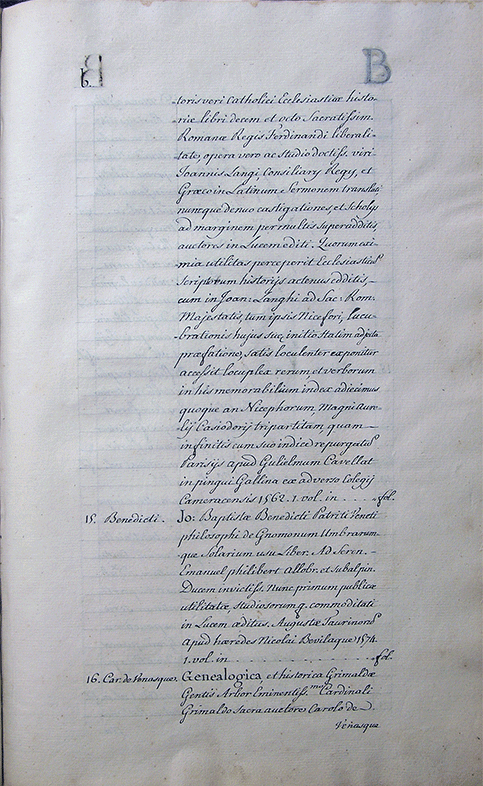 B
toris veri Catholici Ecclesiasticæ histo-
riæ libri decem et octo Sacratissim.
Romanæ Regis Ferdinandi liberali-
tate, opera vero ac Studio doctiss. viri
Joannis Langi, Consiliarij Regij, et
Græco in Latinum Sermonem translati
nuncque denuo castigationes, et Scholijs
ad marginem per multis superadditis,
auctores in Lucem editi. Quorum exi-
mia utilitas perceperit Ecclesiasticus
Scriptorum historijs actenus edditis,-
cum in Joan: Langhi ad Sac: Rom.
Majestatis, tum ipsis Nicefori, lucu-
brationis hujus suæ, initio statim adjecta
præfatione, satis loculenter exponitur
accessit locuplex rerum, et verborum
in his memorabilium index adiecimus
quoque an Nicephorum, Magni Aure-
lij Casiodorij tripartitam quam-
infinitis cum suo indice repurgatus
Parisijs apud Gulielmum Cavellat
in pingui Gallina ex adverso Colegij
Cameracensis 1562. 1. vol. in . . . . . fol.
15. Benedicti. Jo: Baptistæ Benedicti Patriti Veneti
philosophi de Gnomonum Umbrarum-
que Solarium usu Liber. Ad Seren.-
Emanuel philibert Allobr. et Subalpin.
Ducem invictiss. Nunc primum publicæ
utilitatæ, studiosorumq. commoditati
in Lucem æditus. Augustæ Taurinorus
apud hæredes Nicolai Bevilaque 1574.
1. vol. in . . . . . . . . . . . . . . . . fol.
16. Car. de Venasque. Genealogica, et historica Grimaldæ
Gentis Arbor Eminentiss.mo Cardinali
Grimaldo Sacra auctore Carolo de
Venasque